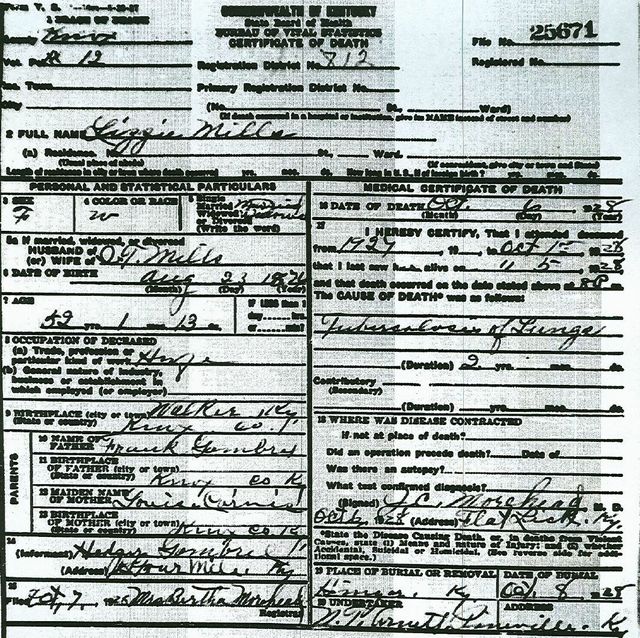 COMMONWEALTH OF KENTUCKY
State Board of Health
BUREAU OF VITAL STATISTICS
CERTIFICATE OF DEATH
Form V. S.
1 PLACE OF DEATH
County Knox
Vot. Pct 12
Registration District No. 712
File No. 25671
Inc. Town
Primary Registration District No.
Registered No.
City
(No. St., Ward)
(If death occurred in a hospital or institution, give its NAME instead of street and number)
2 FULL NAME Lizzie Mills
(a) Residence. No. St., Ward.
(Usual place of abode) (If nonresident, give city or town and State)
Length of residence in city or town where death occurred yrs. mos. ds. How long in U. S., if of foreign birth? yrs. mos. ds.
PERSONAL AND STATISTICAL PARTICULARS
3 SEX F
4 COLOR OR RACE W
5 Single Married Widowed or Divorced (Write the word)
5a If married, widowed, or divorced
HUSBAND of (or) WIFE of O.T. Mills
6 DATE OF BIRTH Aug 23 1876
(Month) (Day) (Year)
7 AGE 52 yrs. 1 mos. 13 ds.
IF LESS than 1 day hrs. or min?
8 OCCUPATION OF DECEASED
(a) Trade, profession or particular kind of work
(b) General nature of industry, business or establishment in which employed (or employer)
9 BIRTHPLACE (city or town) Walker Ky
(State or country) Knox Co.
PARENTS
10 NAME OF FATHER Frank
11 BIRTHPLACE OF FATHER (city or town)
(State or country) Knox Co Ky
12 MAIDEN NAME OF MOTHER
13 BIRTHPLACE OF MOTHER (city or town)
(State or country) Knox Co Ky
14 (Informant)
(Address) Mile, Ky
15 Filed Oct, 7, 1928 Mrs Bertha Morehead
Registrar
MEDICAL CERTIFICATE OF DEATH
16 DATE OF DEATH Oct 6 1928
(Month) (Day) (Year)
17 I HEREBY CERTIFY, That I attended deceased
from 1927, 19, to Oct 5 1928
that I last saw h alive on " 5, 1928
and that death occurred on the date stated above at 8 m.
The CAUSE OF DEATH* was as follows:
Tuberculosis of Lungs
(Duration) 2 yrs. mos. ds.
Contributory
(Secondary)
(Duration) yrs. mos. ds.
18 WHERE WAS DISEASE CONTRACTED
if not at place of death?
Did an operation precede death? Date of
Was there an autopsy?
What test confirmed diagnosis?
(Signed) J.C. Morehead M. D.
Oct 6, 1928 (Address) Flat Lick, Ky.
*State the Disease Causing Death, or in deaths from Violent Causes, state (1) Means and nature of Injury; and (2) whether Accidental, Suicidal or Homicidal. (See reverse side for additional space.)
19 PLACE OF BURIAL OR REMOVAL
Ky
DATE OF BURIAL
Oct, 8, 1928
20 UNDERTAKER
ADDRESS